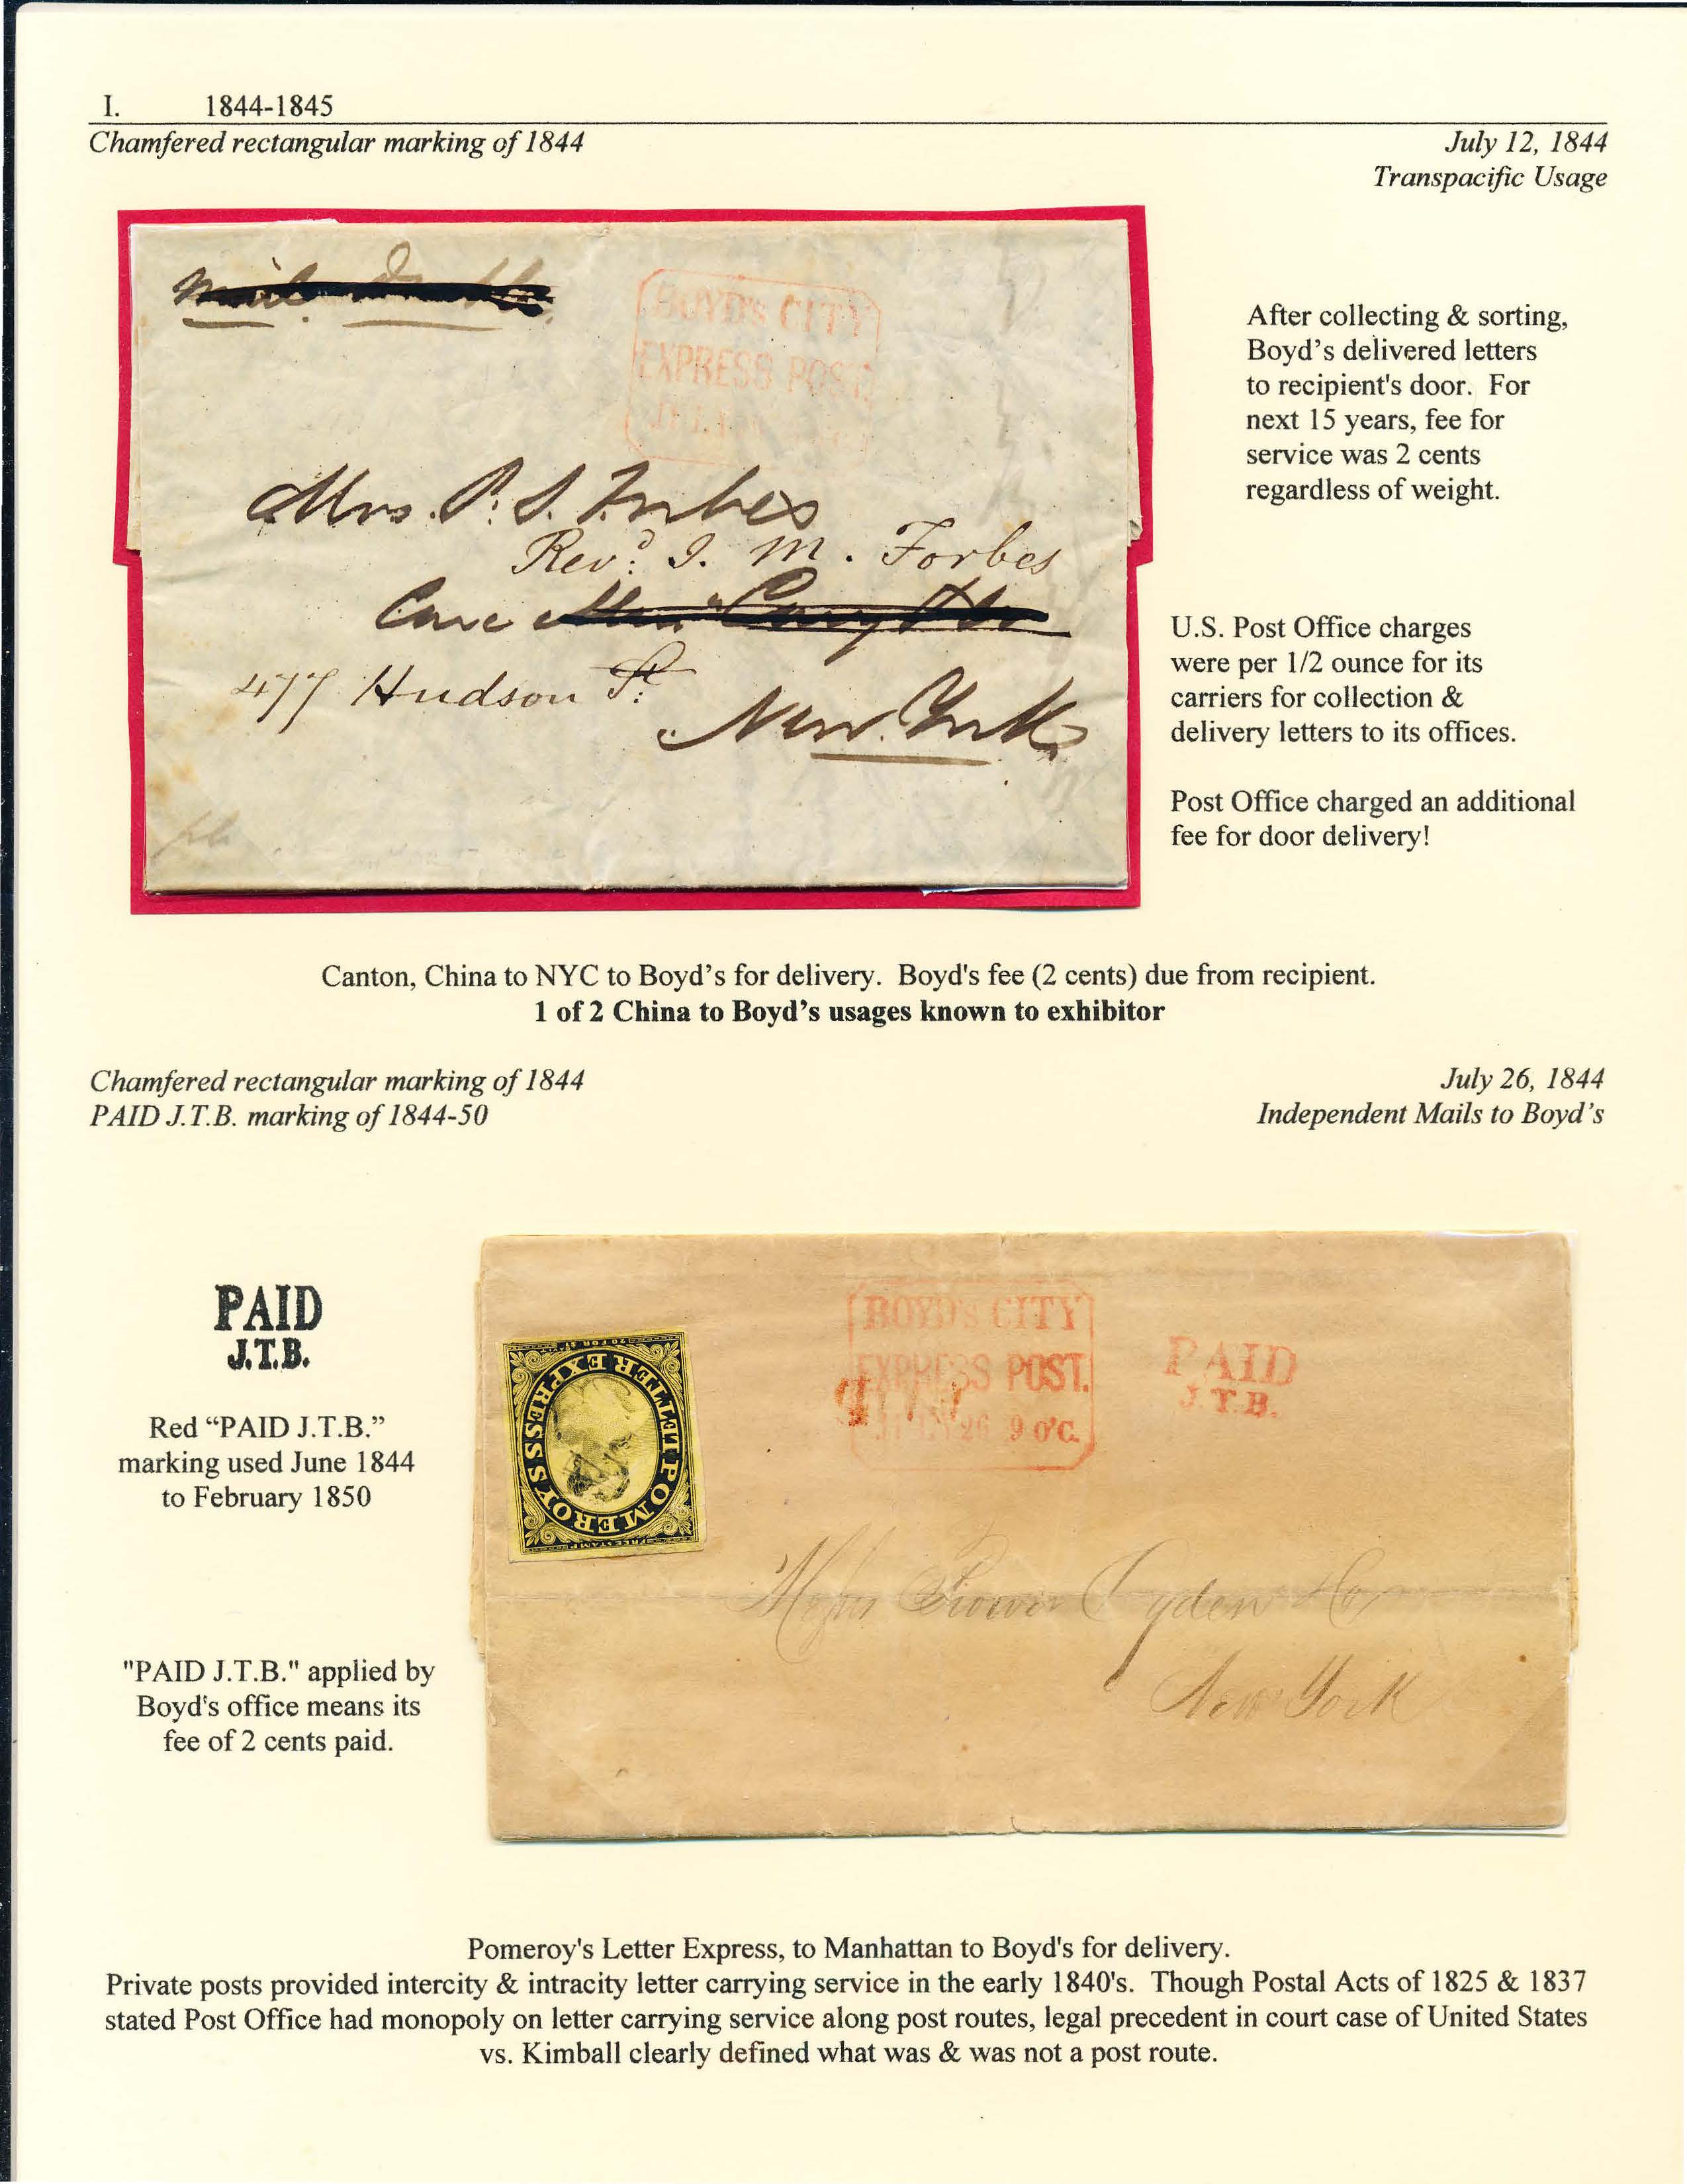 I. 1844-1845
Chamfered rectangular marking of 1844
July 12, 1844
Transpacific Usage
BOYD's CITY
EXPRESS POST.
Mrs. P. S. Forbes
Revd. I. M. Forbes
Care
477 Hudson St.
New York
After collecting & sorting,
Boyd's delivered letters
to recipient's door. For
next 15 years, fee for
service was 2 cents
regardless of weight.
U.S. Post Office charges
were per 1/2 ounce for its
carriers for collection &
delivery letters to its offices.
Post Office charged an additional
fee for door delivery!
Canton, China to NYC to Boyd's for delivery. Boyd's fee (2 cents) due from recipient.
1 of 2 China to Boyd's usages known to exhibitor
Chamfered rectangular marking of 1844
PAID J.T.B. marking of 1844-50
July 26, 1844
Independent Mails to Boyd's
PAID
J.T.B.
Red "PAID J.T.B."
marking used June 1844
to February 1850
"PAID J.T.B." applied by
Boyd's office means its
fee of 2 cents paid.
POMEROY'S EXPRESS LETTER
FREE STAMP
BOYD's CITY
EXPRESS POST.
26 9 o'C.
PAID
J.T.B.
New York
Pomeroy's Letter Express, to Manhattan to Boyd's for delivery.
Private posts provided intercity & intracity letter carrying service in the early 1840's. Though Postal Acts of 1825 & 1837
stated Post Office had monopoly on letter carrying service along post routes, legal precedent in court case of United States
vs. Kimball clearly defined what was & was not a post route.